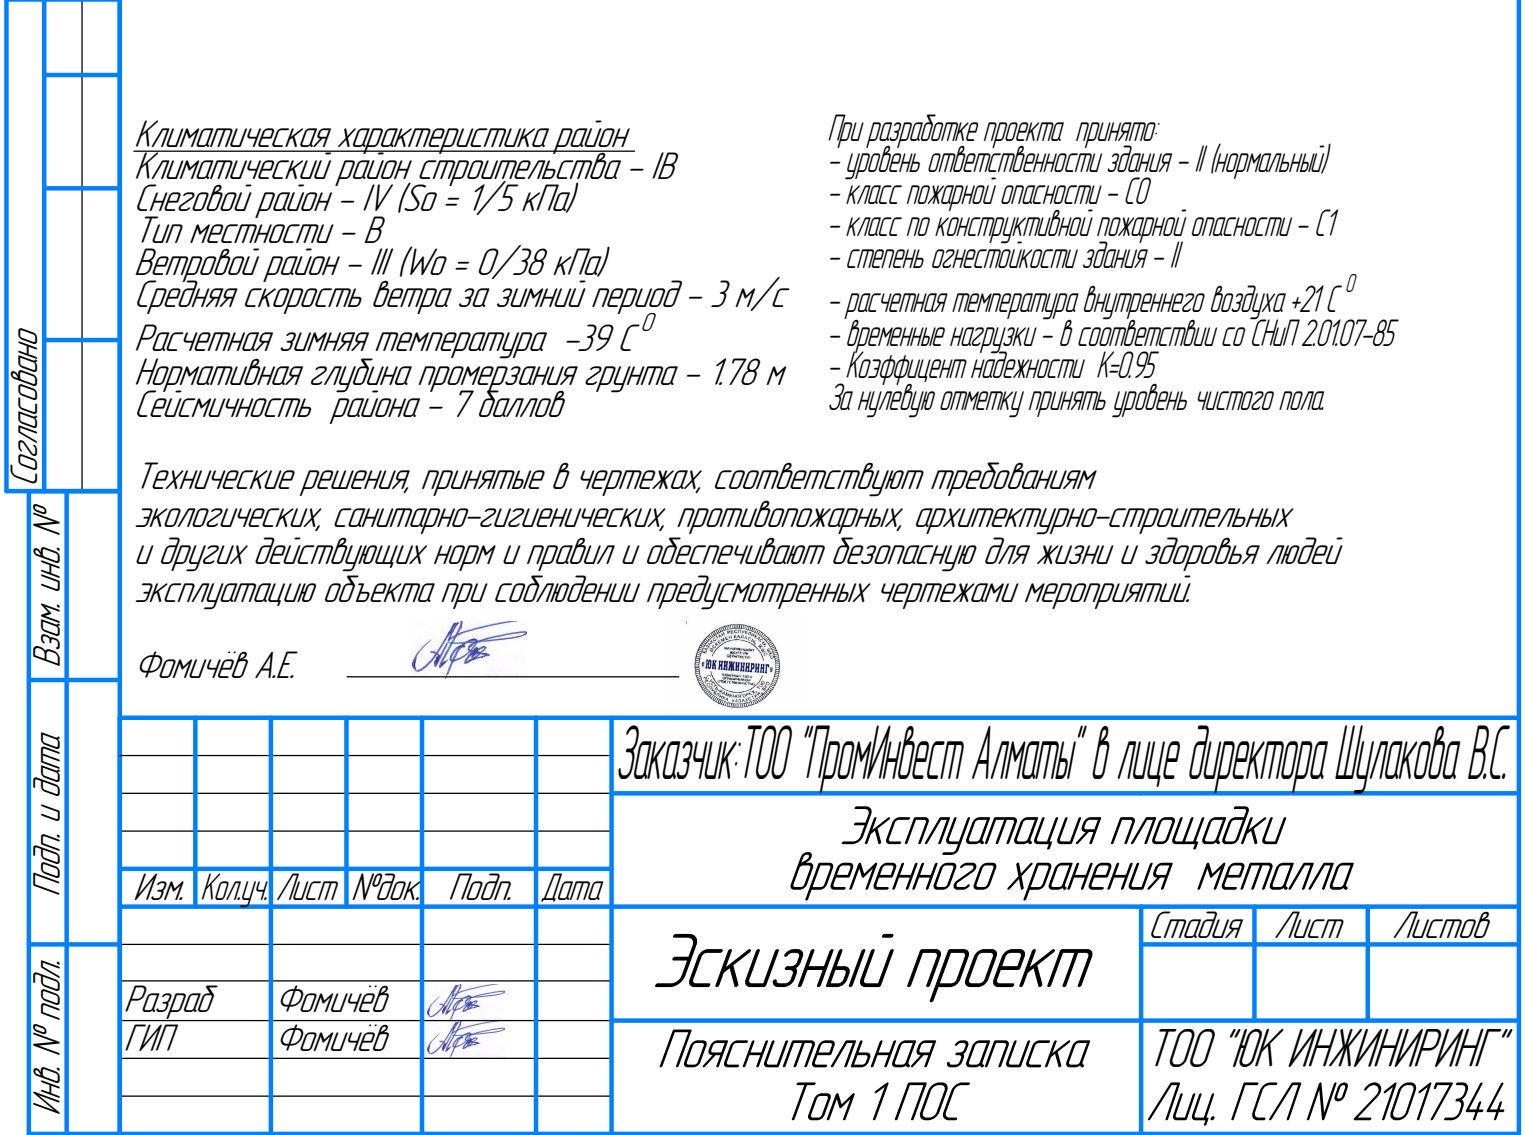 Климатическая характеристика район
Климатический район строительства – IВ
Снеговой район – IV (So = 1/5 кПа)
Тип местности – В
Ветровой район – III (Wo = 0/38 кПа)
Средняя скорость ветра за зимний период – 3 м/с
Расчетная зимняя температура –39 С⁰
Нормативная глубина промерзания грунта – 1.78 м
Сейсмичность района – 7 баллов
При разработке проекта принято:
– уровень ответственности здания – II (нормальный)
– класс пожарной опасности – СО
– класс по конструктивной пожарной опасности – С1
– степень огнестойкости здания – II
– расчетная температура внутреннего воздуха +21 С⁰
– временные нагрузки – в соответствии со СНиП 2.01.07–85
– Коэффицент надежности К=0.95
За нулевую отметку принять уровень чистого пола.
Технические решения, принятые в чертежах, соответствуют требованиям
экологических, санитарно–гигиенических, противопожарных, архитектурно–строительных
и других действующих норм и правил и обеспечивают безопасную для жизни и здоровья людей
эксплуатацию объекта при соблюдении предусмотренных чертежами мероприятий.
Фомичёв А.Е.
"ЮК ИНЖИНИРИНГ"
Согласовано
Взам. инв. №
Подп. и дата
Инв. № подл.
Заказчик:ТОО "ПромИнвест Алматы" в лице директора Шулакова В.С.
Эксплуатация площадки
временного хранения металла
Изм. Кол.уч. Лист №док. Подп. Дата
Эскизный проект
Стадия Лист Листов
Разраб Фомичёв
ГИП Фомичёв
Пояснительная записка
Том 1 ПОС
ТОО "ЮК ИНЖИНИРИНГ"
Лиц. ГСЛ № 21017344